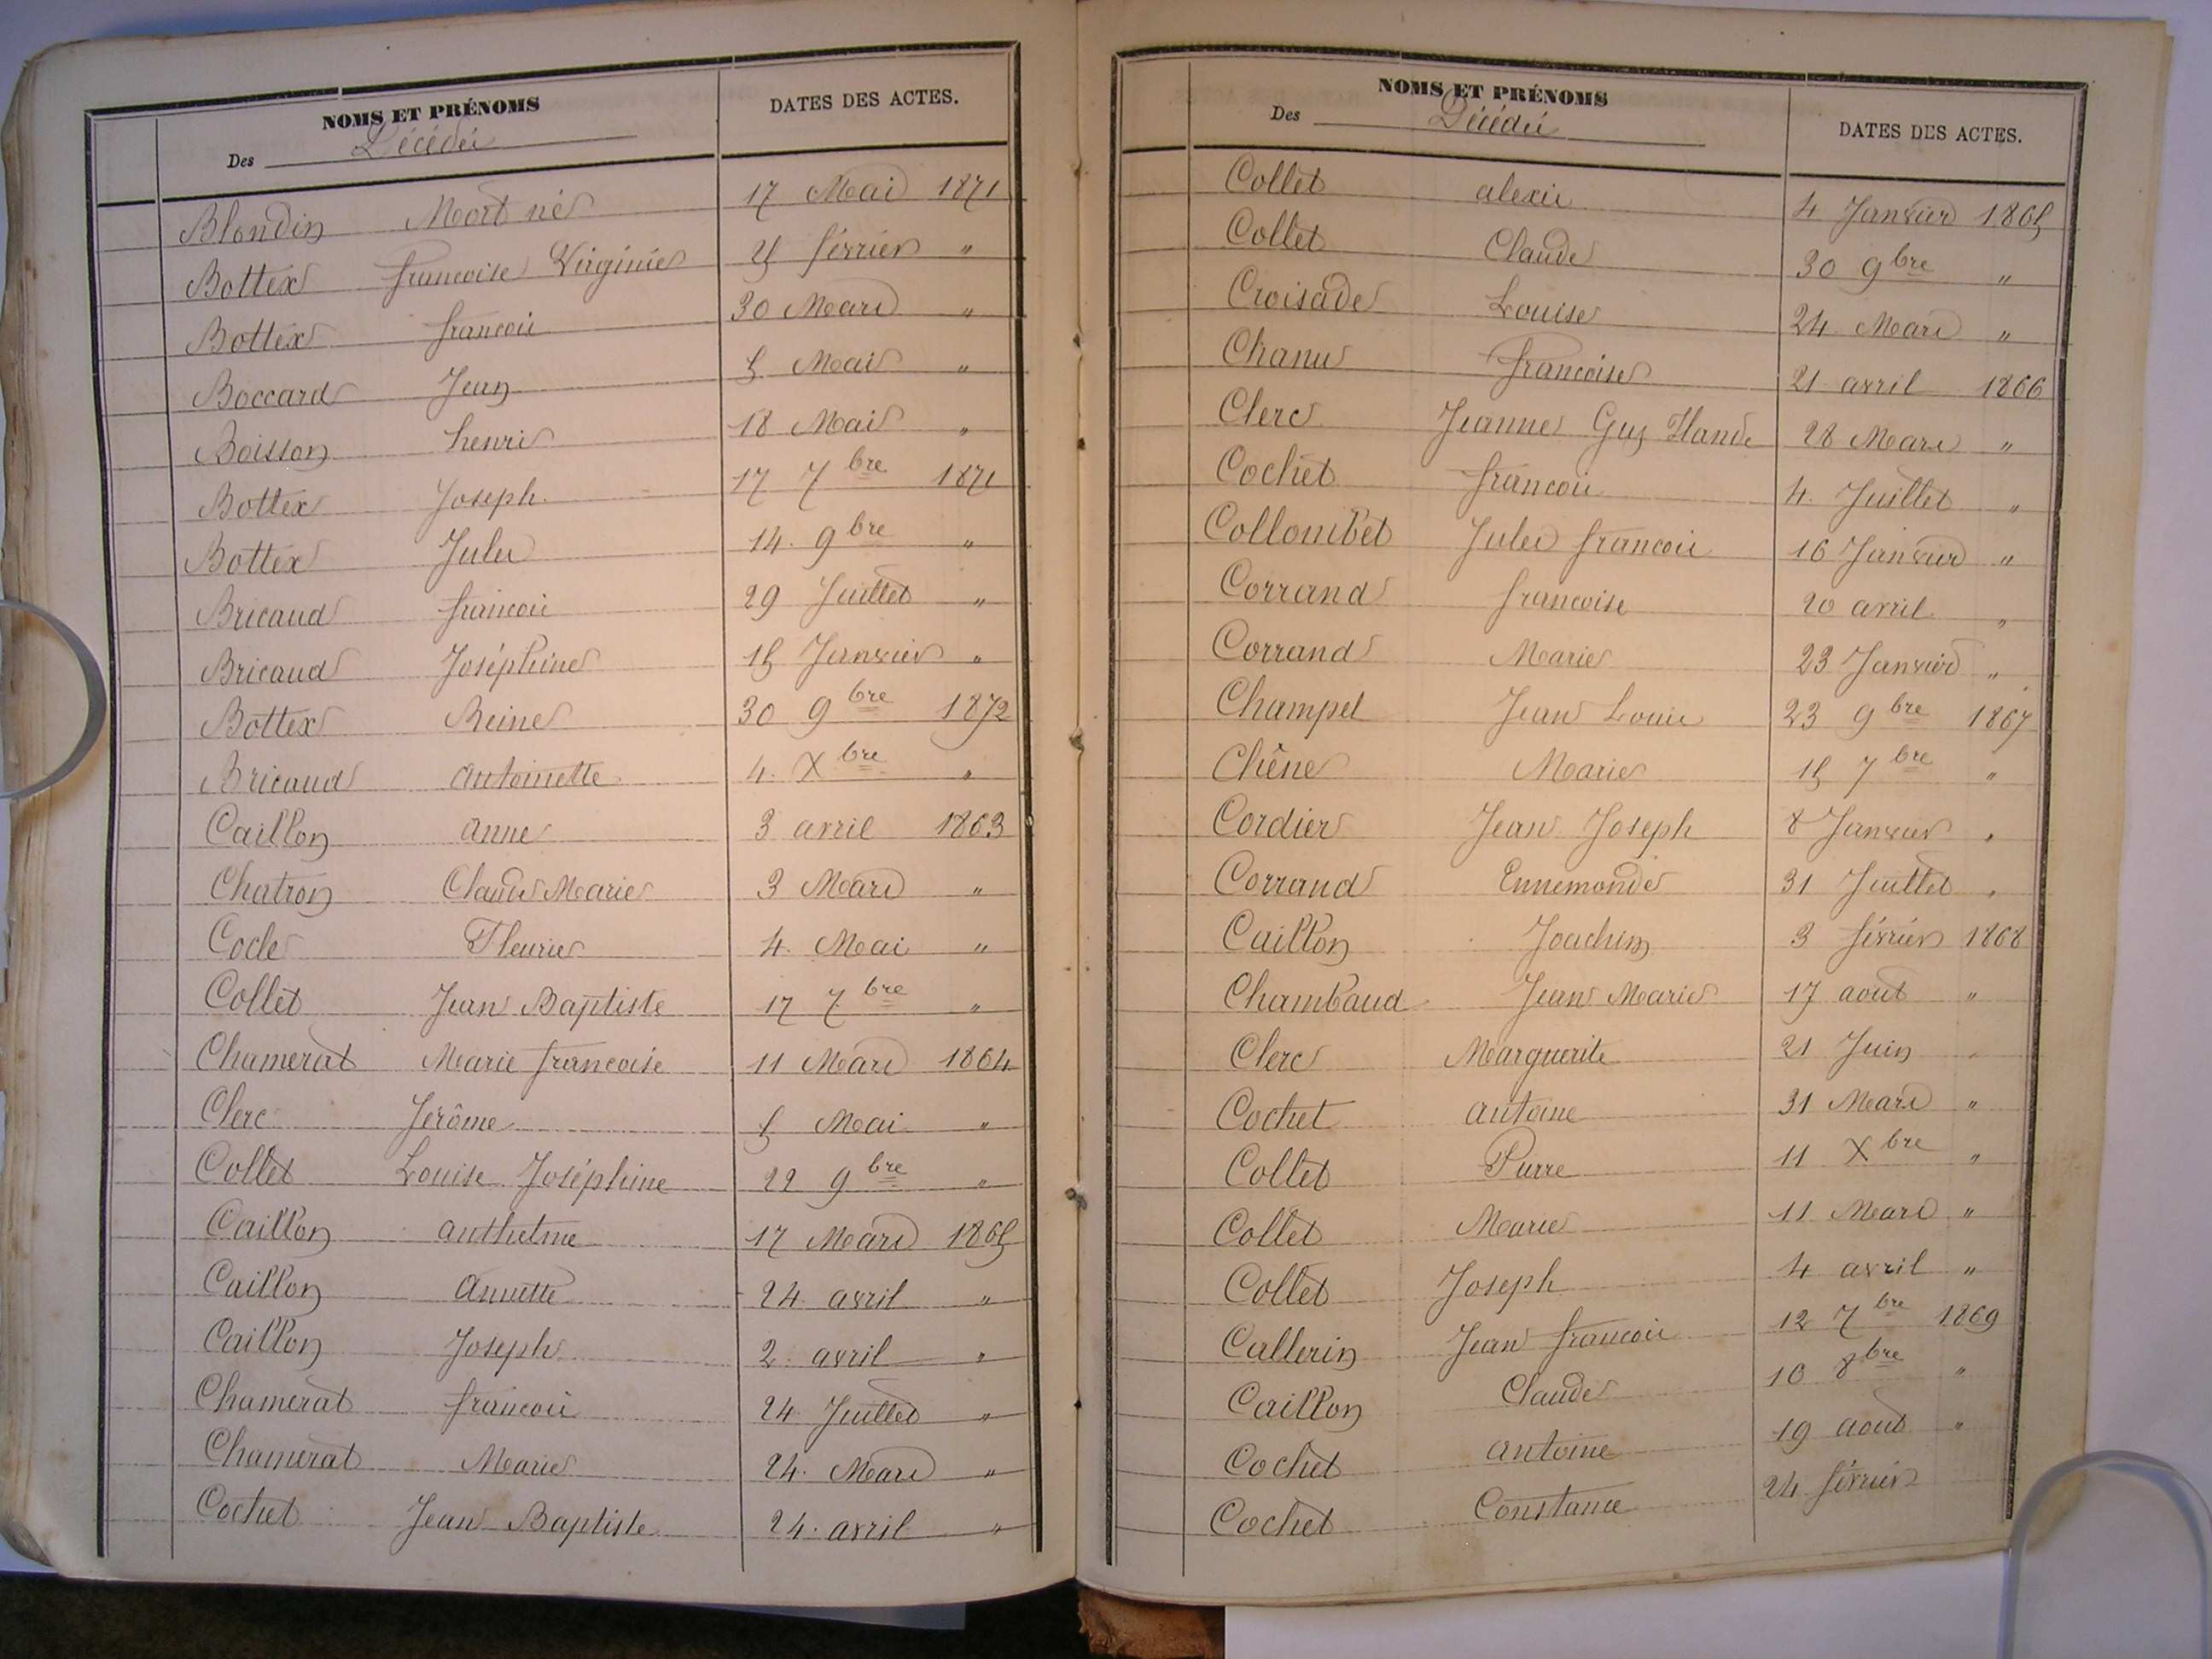 NOMS ET PRÉNOMS
Des Décédés
DATES DES ACTES.
Blondin Mort né 17 Mai 1871
Bottex francoise Virginie 25 février "
Bottex francois 30 Mars "
Boccard Jean 5 Mai "
Boisson henri 18 Mai "
Bottex Joseph 17 7bre 1871
Bottex Jules 14 9bre "
Bricaud francois 29 Juillet "
Bricaud Joséphine 15 Janvier "
Bottex Reine 30 9bre 1872
Bricaud antoinette 4 Xbre "
Caillon anne 3 avril 1863
Chatron Claude Marie 3 Mars "
Cocle Fleurie 4 Mai "
Collet Jean Baptiste 17 7bre "
Chamerat Marie francoise 11 Mars 1864
Clerc Jérôme 5 Mai "
Collet Louise Joséphine 22 9bre "
Caillon anthelme 17 Mars 1865
Caillon annette 24 avril "
Caillon Joseph 2 avril "
Chamerat francois 24 Juillet "
Chamerat Marie 24 Mars "
Cochet Jean Baptiste 24 avril "
NOMS ET PRÉNOMS
Des Décédés
DATES DES ACTES.
Collet alexis 4 Janvier 1865
Collet Claude 30 9bre "
Croisade Louise 24 Mars "
Chanu francoise 21 avril 1866
Clerc Jeanne Guy 28 Mars "
Cochet francois 4 Juillet "
Collombet Jules francois 16 Janvier "
Corrand francoise 20 avril "
Corrand Marie 23 Janvier "
Champel Jean Louis 23 9bre 1867
Chêne Marie 15 7bre "
Cordier Jean Joseph 8 Janvier "
Corrand Ennemonde 31 Juillet "
Caillon Joachim 3 février 1868
Chambaud Jean Marie 17 aout "
Clerc Marguerite 21 Juin "
Cochet antoine 31 Mars "
Collet Pierre 11 Xbre "
Collet Marie 11 Mars "
Collet Joseph 4 avril "
Callerin Jean francois 12 7bre 1869
Caillon Claude 10 8bre "
Cochet antoine 19 aout "
Cochet Constance 24 février